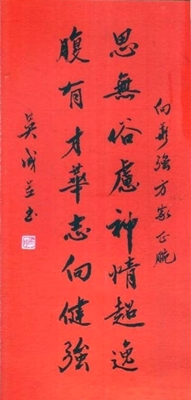 向新強方家正腕
思無俗慮神情超逸
腹有才華志向健強
吳成立书